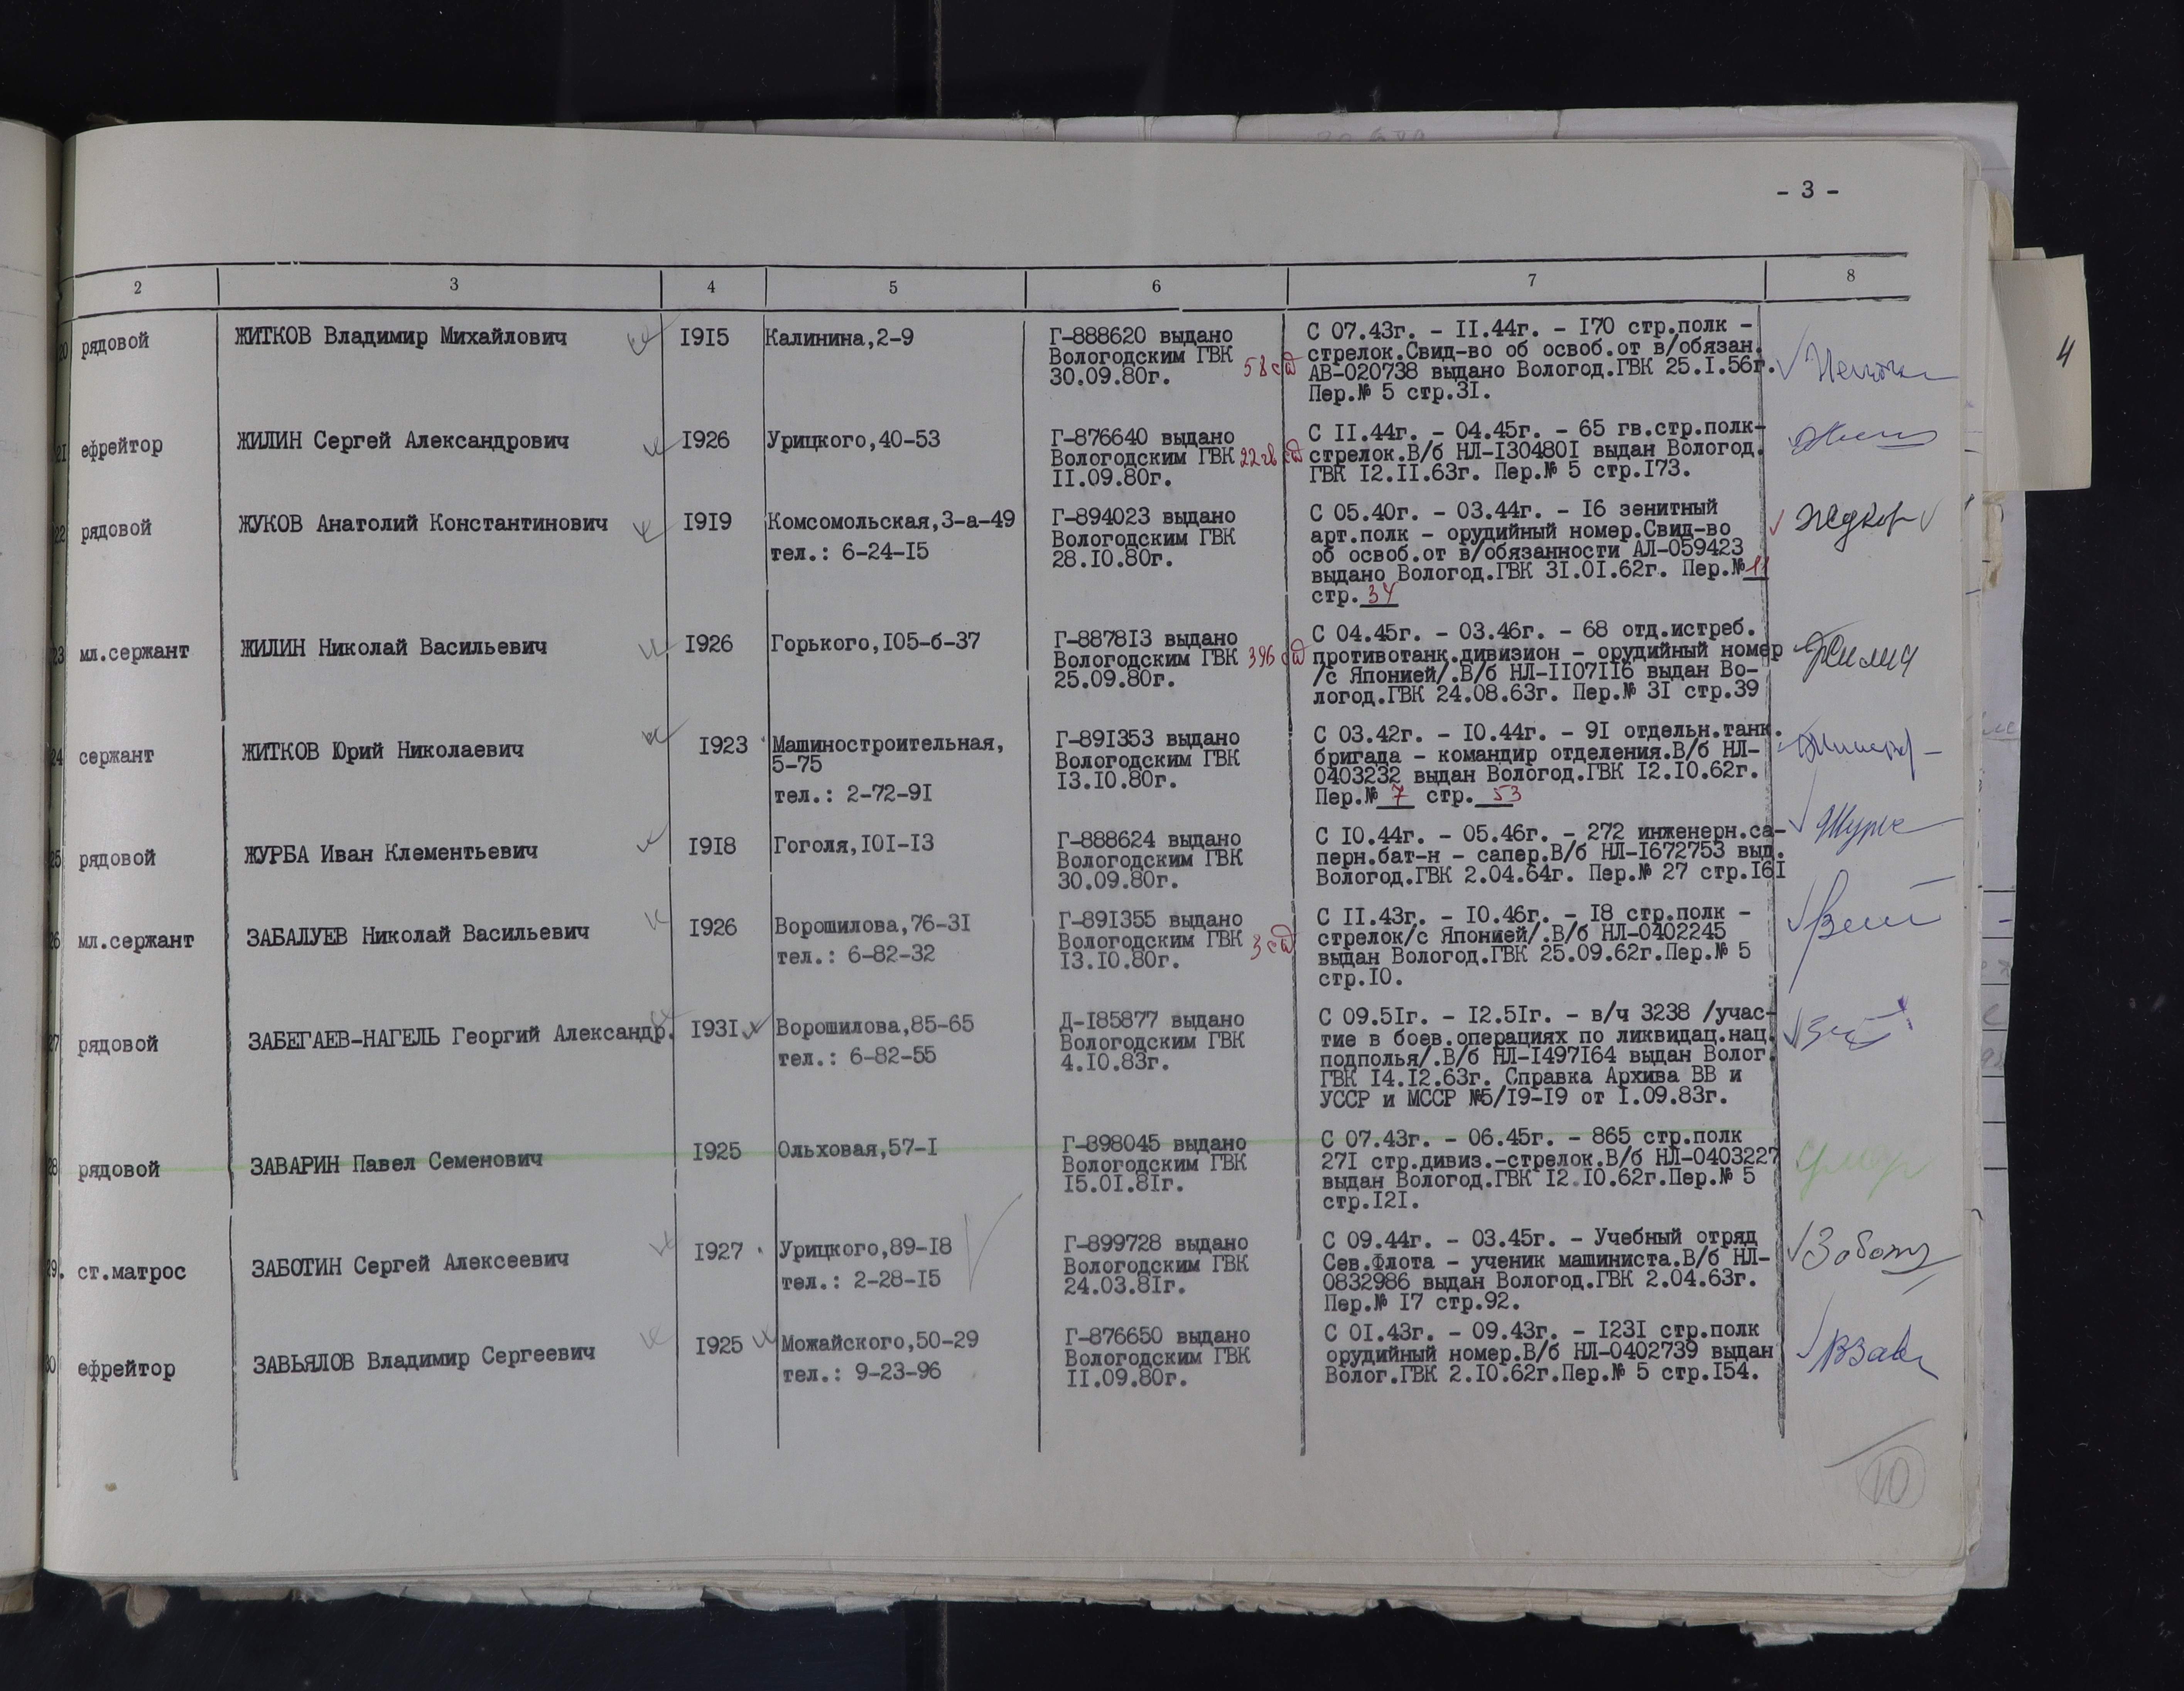 - 3 -
2 3 4 5 6 7 8
4
20 рядовой ЖИТКОВ Владимир Михайлович I9I5 Калинина,2-9 Г-888620 выдано
Вологодским ГВК 58 сд
30.09.80г.
С 07.43г. - II.44г. - I70 стр.полк -
стрелок.Свид-во об освоб.от в/обязан.
АВ-020738 выдано Вологод.ГВК 25.I.56г.
Пер.№ 5 стр.3I.
2I ефрейтор ЖИЛИН Сергей Александрович I926 Урицкого,40-53 Г-876640 выдано
Вологодским ГВК 22 гв сд
II.09.80г.
С II.44г. - 04.45г. - 65 гв.стр.полк-
стрелок.В/б НЛ-I30480I выдан Вологод.
ГВК I2.II.63г. Пер.№ 5 стр.I73.
22 рядовой ЖУКОВ Анатолий Константинович I9I9 Комсомольская,3-а-49
тел.: 6-24-I5
Г-894023 выдано
Вологодским ГВК
28.I0.80г.
С 05.40г. - 03.44г. - I6 зенитный
арт.полк - орудийный номер.Свид-во
об освоб.от в/обязанности АЛ-059423
выдано Вологод.ГВК 3I.0I.62г. Пер.№ 11
стр. 34
Жуков
23 мл.сержант ЖИЛИН Николай Васильевич I926 Горького,I05-б-37 Г-8878I3 выдано
Вологодским ГВК 396 сд
25.09.80г.
С 04.45г. - 03.46г. - 68 отд.истреб.
противотанк.дивизион - орудийный номер
/с Японией/.В/б НЛ-II07II6 выдан Во-
логод.ГВК 24.08.63г. Пер.№ 3I стр.39
Жилин
24 сержант ЖИТКОВ Юрий Николаевич I923 Машиностроительная,
5-75
тел.: 2-72-9I
Г-89I353 выдано
Вологодским ГВК
I3.I0.80г.
С 03.42г. - I0.44г. - 9I отдельн.танк.
бригада - командир отделения.В/б НЛ-
0403232 выдан Вологод.ГВК I2.I0.62г.
Пер.№ 7 стр. 53
25 рядовой ЖУРБА Иван Клементьевич I9I8 Гоголя,I0I-I3 Г-888624 выдано
Вологодским ГВК
30.09.80г.
С I0.44г. - 05.46г. - 272 инженерн.са-
перн.бат-н - сапер.В/б НЛ-I672753 выд.
Вологод.ГВК 2.04.64г. Пер.№ 27 стр.I6I
26 мл.сержант ЗАБАЛУЕВ Николай Васильевич I926 Ворошилова,76-3I
тел.: 6-82-32
Г-89I355 выдано
Вологодским ГВК 3 сд
I3.I0.80г.
С II.43г. - I0.46г. - I8 стр.полк -
стрелок/с Японией/.В/б НЛ-0402245
выдан Вологод.ГВК 25.09.62г.Пер.№ 5
стр.I0.
27 рядовой ЗАБЕГАЕВ-НАГЕЛЬ Георгий Александр. I93I Ворошилова,85-65
тел.: 6-82-55
Д-I85877 выдано
Вологодским ГВК
4.I0.83г.
С 09.5Iг. - I2.5Iг. - в/ч 3238 /учас-
тие в боев.операциях по ликвидац.нац.
подполья/.В/б НЛ-I497I64 выдан Волог.
ГВК I4.I2.63г. Справка Архива ВВ и
УССР и МССР №5/I9-I9 от I.09.83г.
28 рядовой ЗАВАРИН Павел Семенович I925 Ольховая,57-I Г-898045 выдано
Вологодским ГВК
I5.0I.8Iг.
С 07.43г. - 06.45г. - 865 стр.полк
27I стр.дивиз.-стрелок.В/б НЛ-0403227
выдан Вологод.ГВК I2.I0.62г.Пер.№ 5
стр.I2I.
29. ст.матрос ЗАБОТИН Сергей Алексеевич I927 Урицкого,89-I8
тел.: 2-28-I5
Г-899728 выдано
Вологодским ГВК
24.03.8Iг.
С 09.44г. - 03.45г. - Учебный отряд
Сев.Флота - ученик машиниста.В/б НЛ-
0832986 выдан Вологод.ГВК 2.04.63г.
Пер.№ I7 стр.92.
30 ефрейтор ЗАВЬЯЛОВ Владимир Сергеевич I925 Можайского,50-29
тел.: 9-23-96
Г-876650 выдано
Вологодским ГВК
II.09.80г.
С 0I.43г. - 09.43г. - I23I стр.полк
орудийный номер.В/б НЛ-0402739 выдан
Волог.ГВК 2.I0.62г.Пер.№ 5 стр.I54.
10